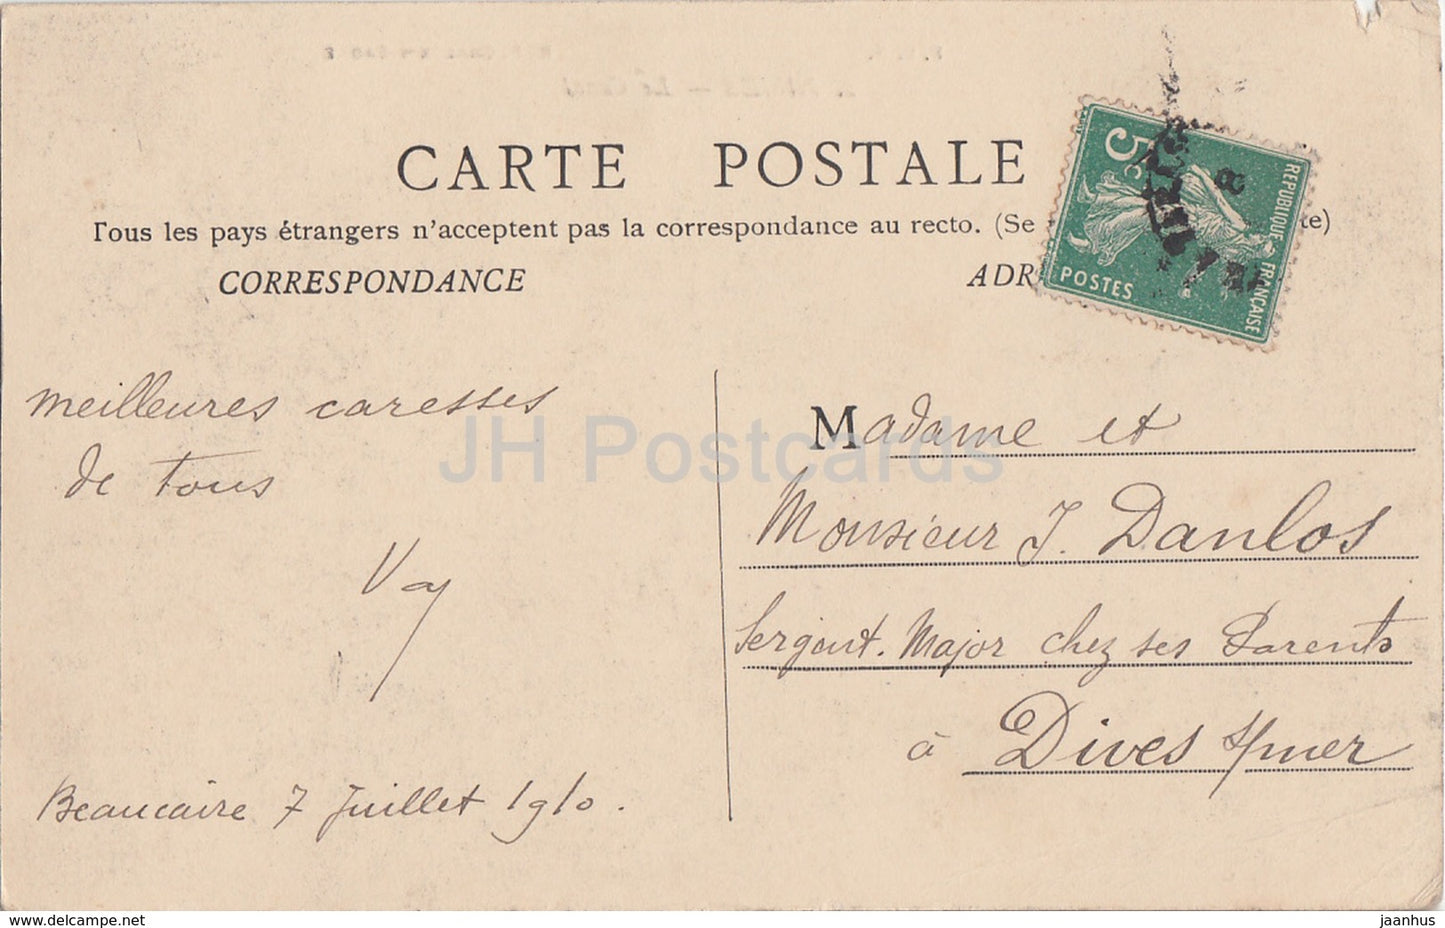 CARTE POSTALE
Tous les pays étrangers n'acceptent pas la correspondance au recto. (Se te)
CORRESPONDANCE
ADR
5c
POSTES
REPUBLIQUE FRANÇAISE
8
meilleures caresses
de tous
Madame et
Monsieur J. Danlos
Sergent. Major chez ses Parents
à Dives s/mer
Beaucaire 7 Juillet 1910.
JH Postcards
delcampe.net
jaanhus